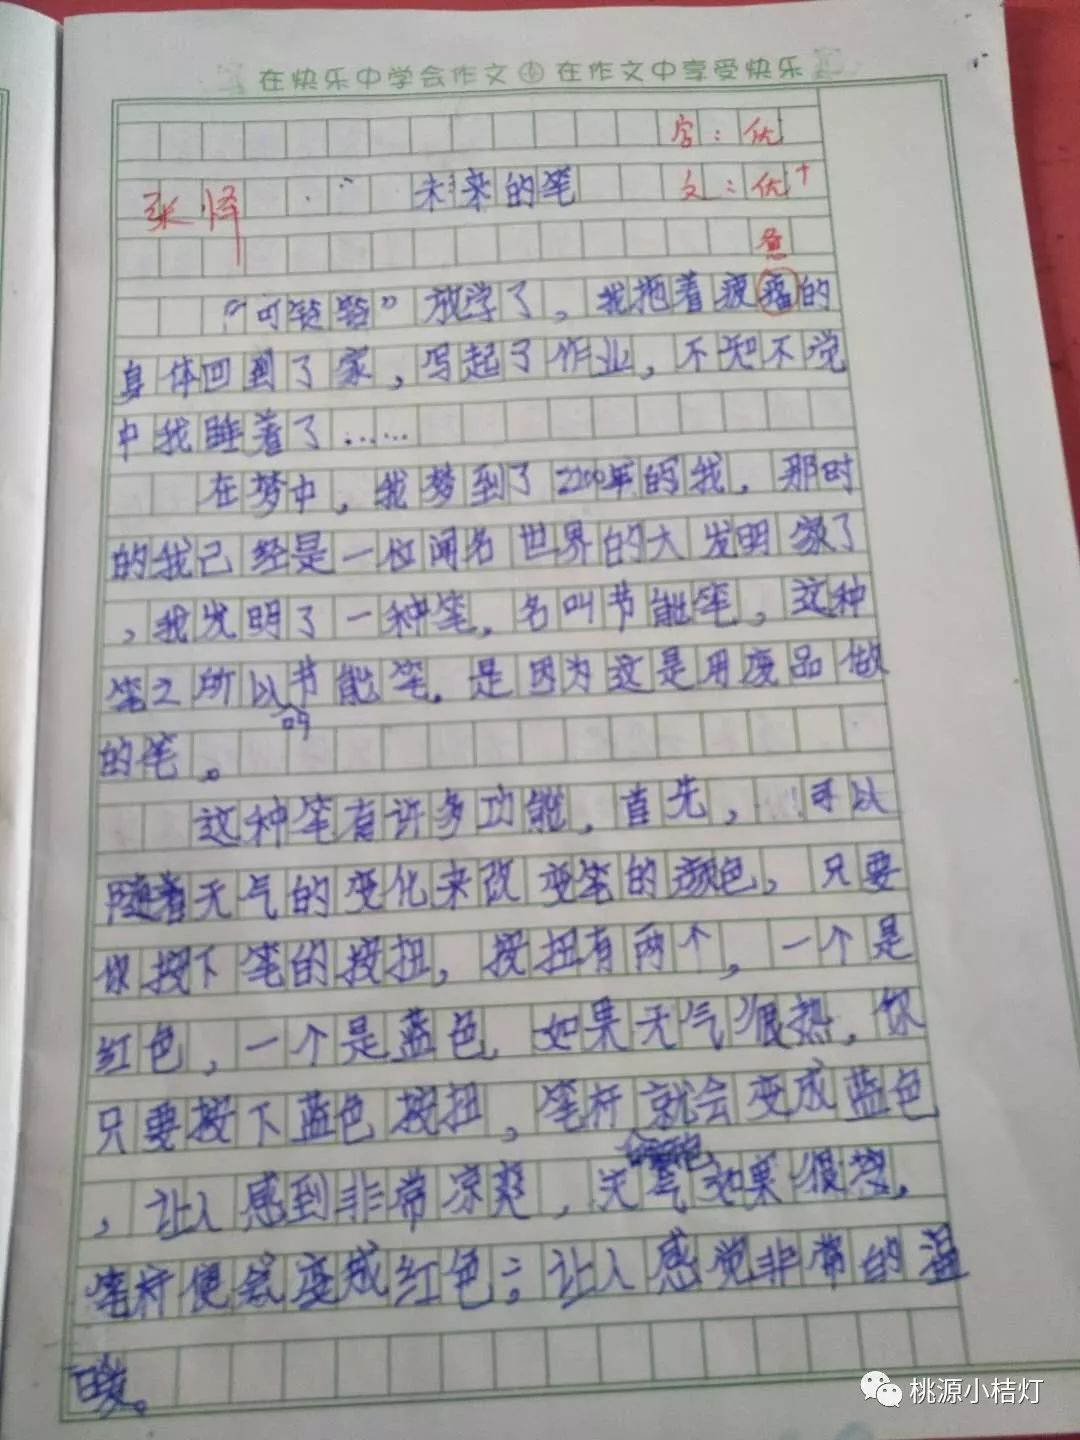 在快乐中学会作文 在作文中享受快乐
字：优
张怿 未来的笔 文：优+
惫
“叮铃铃”放学了，我拖着疲的
身体回到了家，写起了作业，不知不觉
中我睡着了……
在梦中，我梦到了2200年的我，那时
的我己经是一位闻名世界的大发明家了
，我发明了一种笔，名叫节能笔，这种
笔之所以叫节能笔，是因为这是用废品做
的笔。
这种笔有许多功能，首先，可以
随着天气的变化来改变笔的颜色，只要
你按下笔的按扭，按扭有两个，一个是
红色，一个是蓝色，如果天气很热，你
只要按下蓝色按扭，笔杆就会变成蓝色
，让人感到非常凉爽，天气如果很
笔杆便会变成红色；让人感觉非常的温
暖。
桃源小桔灯